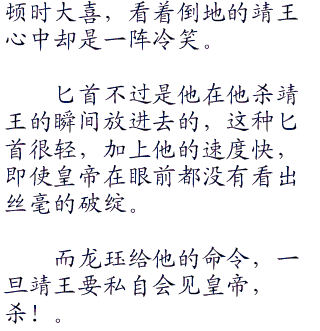 顿时大喜，看着倒地的靖王
心中却是一阵冷笑。
匕首不过是他在他杀靖
王的瞬间放进去的，这种匕
首很轻，加上他的速度快，
即使皇帝在眼前都没有看出
丝毫的破绽。
而龙珏给他的命令，一
旦靖王要私自会见皇帝，
杀！。